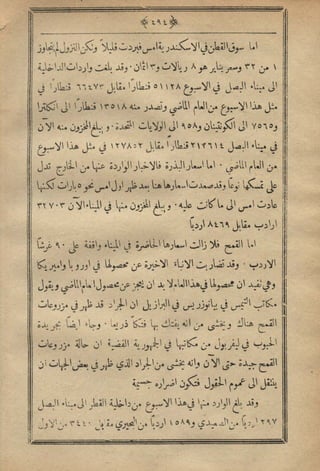 ﴿٤٩٤﴾
اما سوق القطن في الاسكندرية امس فبردت قليلاً ولكن النزول لم يتجاوز
١ من ٣٢ وسعر يناير هو ٨ ريالات و٣ اثمان · وقد بلغت واردات الداخلية
الى ميناء البصل في الاسبوع ٥١١٢٨ قنطارًا مقابل ٦٦٤٧٣ قنطارًا في
مثل هذا الاسبوع من العام الماضي وتصدر منه ١٣٥١٨ قنطارًا الى انكلترا
و٧٥٦٥ الى الكونتينان و٩٥٨ الى الولايات المتحدة · ويبلغ المخزون منه الآن
في ميناء البصل ٢١٣٦١٤ قنطارًا مقابل ١٢٧٨٠٢ في مثل هذا الاسبوع
من العام الماضي · اما اسعار البذرة فالاخبار الواردة عنها من الخارج تدل
على تمسكها نوعًا وقد صعدت اسعارها هنا بعد ظهر اول امس نحو ٥ بارات لكنها
عادت امس الى ما كانت عليه · ويبلغ المخزون منها في الميناء الآن ٣٢٧٠٣
ارادب مقابل ٨٤٦٩ اردبًا
اما القمح فلا زالت اسعارها الحاضرة في الميناء واقفة على ٩٠ غرشًا
الاردب · وقد تضاربت الانباء الاخيرة عن محصولها في اوروبا واميريكا
وهي تفيد ان محصولها في هذا العام لا بد ان يعجز عن محصول العام الماضي ويقول
مكاتب التيمس في بيانوزريس في البرازيل ان الجراد قد ظهر في مزروعات
القمح هناك ويخشى من انه يفتك بها فتكًا ذريعًا · وجاء ايضًا بجريدة
الحبوب في ليفربول من مكاتبها في الجمهورية الفضية ان حالة مزروعات
القمح جيدة حتى الآن وانه يخشى من الجراد الذي ظهر في بعض الجهات ان
ينتقل الى عموم الحقول فتكون اضراره جسيمة
وقد بلغ الوارد منها في هذا الاسبوع من داخلية القطر الى ميناء البصل
٢٩٧ اردبًا من الصعيدي و١٥٨٩ اردبًا من البحيري مقابل ٣٤٤٠ من الاول